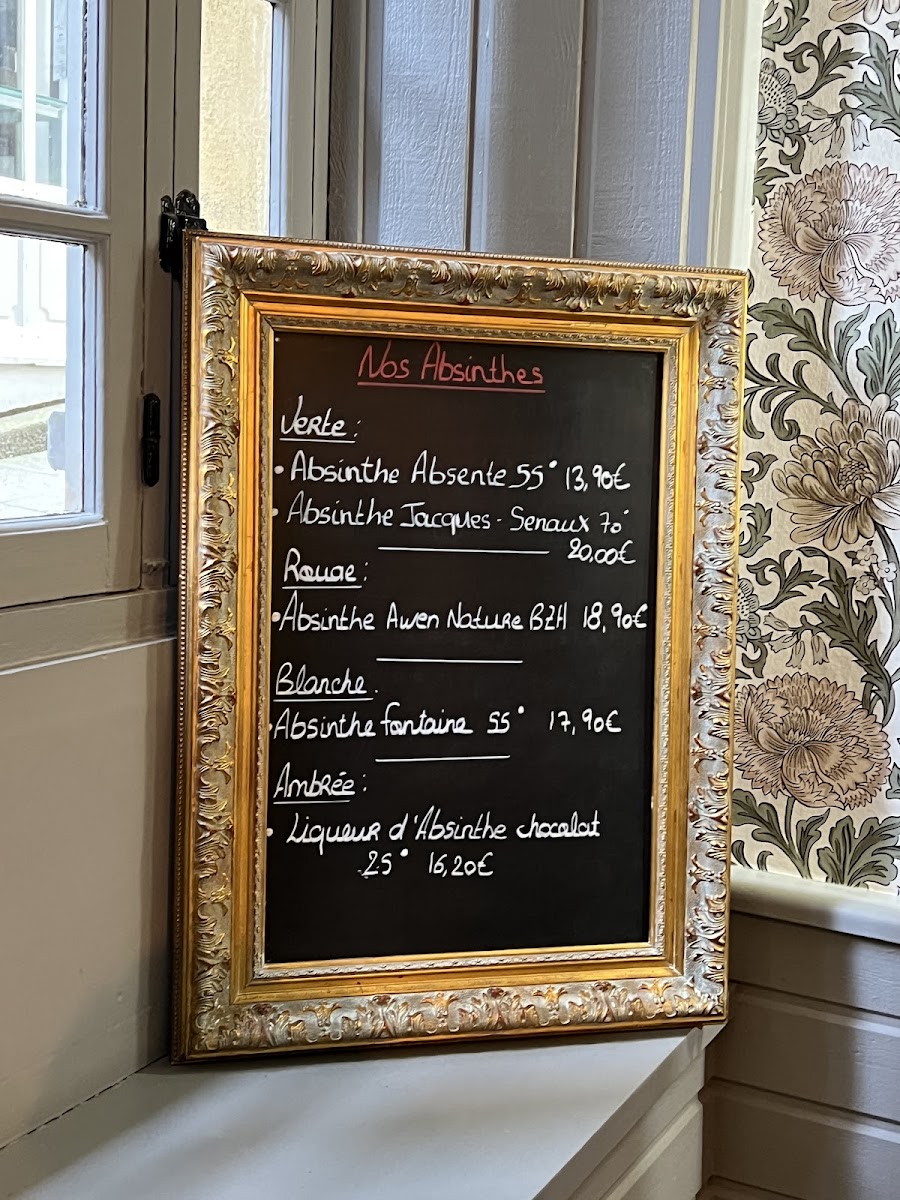 Nos Absinthes
Verte :
• Absinthe Absente 55° 13,90€
• Absinthe Jacques - Senaux 70°
20,00€
Rouge :
• Absinthe Awen Nature BZH 18,90€
Blanche.
• Absinthe fontaine 55° 17,90€
Ambrée :
• Liqueur d'Absinthe chocolat
25° 16,20€